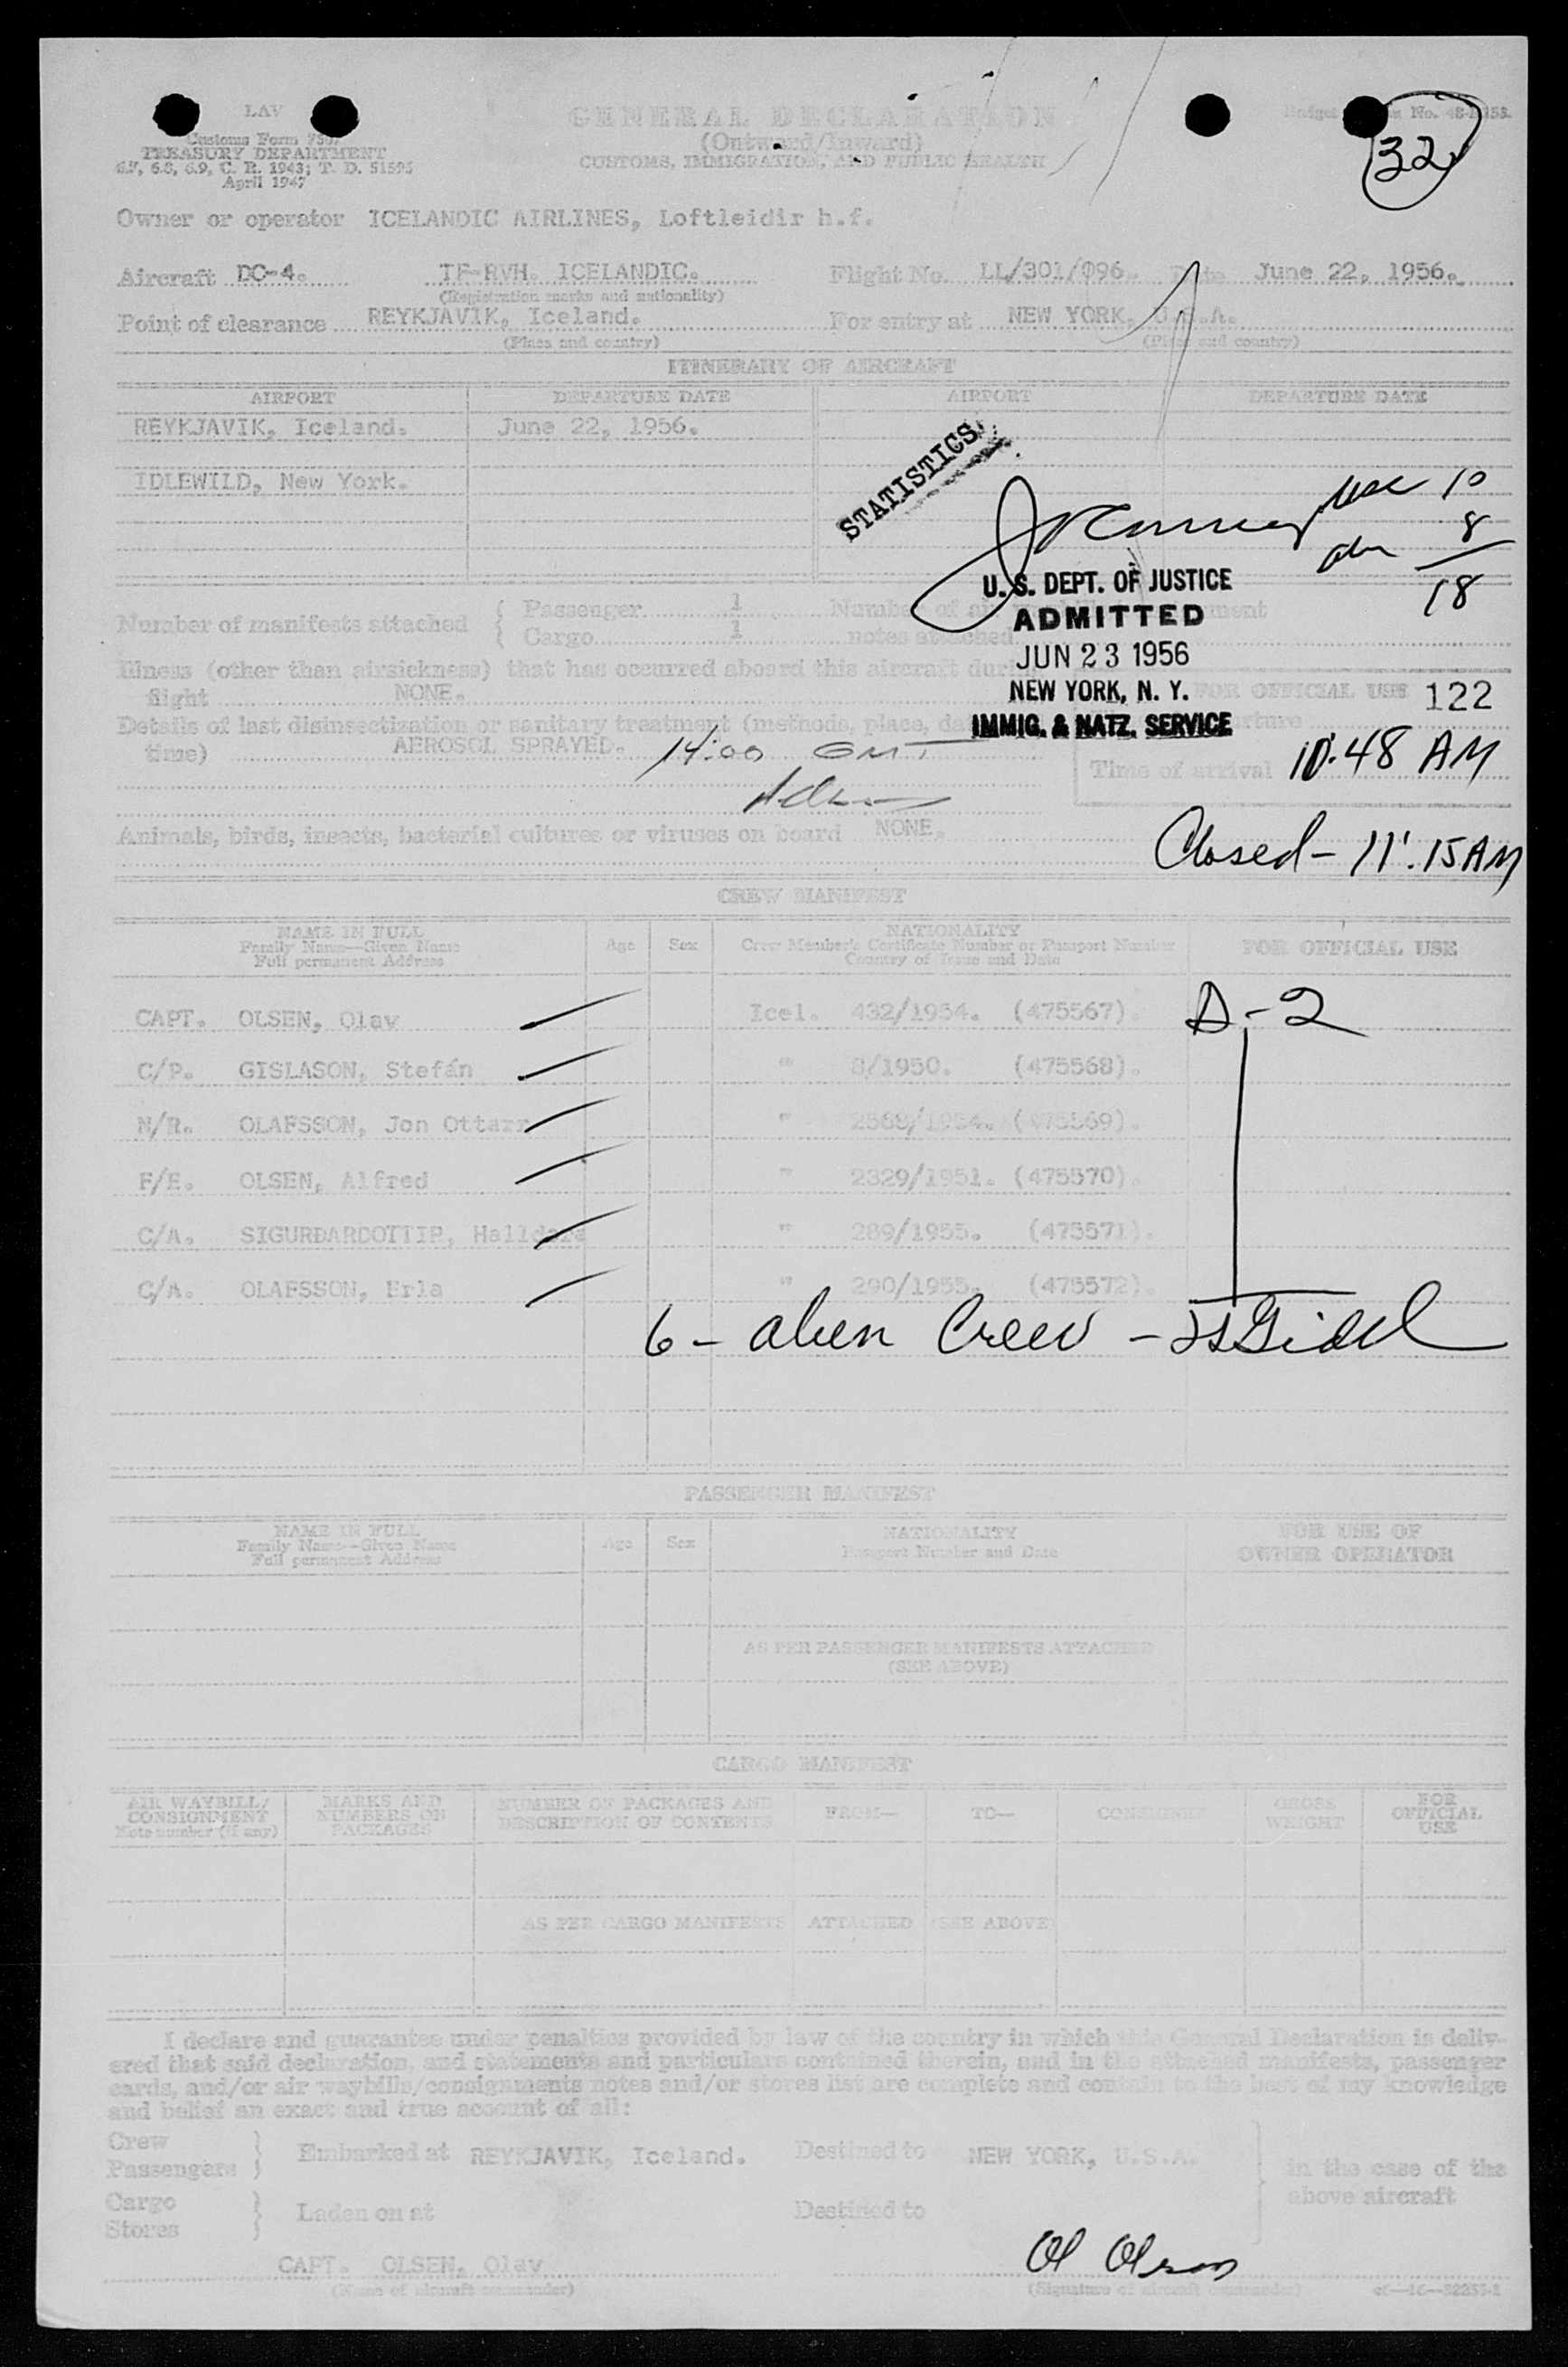 LAV
Customs Form 7507
TREASURY DEPARTMENT
6.7, 6.8, 6.9, C. R. 1943; T. D. 51595
April 1947
GENERAL DECLARATION
(Outward/Inward)
CUSTOMS, IMMIGRATION, AND PUBLIC HEALTH
Budget No.
32
Owner or operator ICELANDIC AIRLINES, Loftleidir h.f.
Aircraft DC-4. TF-RVH. ICELANDIC. Flight No. LL/301/096. Date June 22, 1956.
(Registration marks and nationality)
Point of clearance REYKJAVIK, Iceland. For entry at NEW YORK, U.S.A.
(Place and country) (Place and country)
ITINERARY OF AIRCRAFT
AIRPORT DEPARTURE DATE AIRPORT DEPARTURE DATE
REYKJAVIK, Iceland. June 22, 1956.
IDLEWILD, New York.
STATISTICS
usc 10
8
18
U. S. DEPT. OF JUSTICE
ADMITTED
JUN 23 1956
NEW YORK, N. Y.
IMMIG. & NATZ. SERVICE
Number of manifests attached { Passenger 1 Number of air
Cargo 1 notes attached
Illness (other than airsickness) that has occurred aboard this aircraft during
flight NONE.
FOR OFFICIAL USE 122
Details of last disinsectization or sanitary treatment (methods, place, da
time) AEROSOL SPRAYED. 14:00 GMT
Time of arrival 10:48 AM
Animals, birds, insects, bacterial cultures or viruses on board NONE.
Closed - 11:15 AM
CREW MANIFEST
NAME IN FULL
Family Name—Given Name
Full permanent Address
Age Sex
NATIONALITY
Crew Member's Certificate Number or Passport Number
Country of Issue and Date
FOR OFFICIAL USE
CAPT. OLSEN, Olav Icel. 432/1954. (475567). D-2
C/P. GISLASON, Stefán " 8/1950. (475568).
N/R. OLAFSSON, Jon Ottarr " 2568/1954. (475569).
F/E. OLSEN, Alfred " 2329/1951. (475570).
C/A. SIGURDARDOTTIR, Halldora " 289/1955. (475571).
C/A. OLAFSSON, Erla " 290/1955. (475572).
6 - alien Crew -
PASSENGER MANIFEST
NAME IN FULL
Family Name—Given Name
Full permanent Address
Age Sex
NATIONALITY
Passport Number and Date
FOR USE OF
OWNER OPERATOR
AS PER PASSENGER MANIFESTS ATTACHED
(SEE ABOVE)
CARGO MANIFEST
AIR WAYBILL/
CONSIGNMENT
Note number (if any)
MARKS AND
NUMBERS ON
PACKAGES
NUMBER OF PACKAGES AND
DESCRIPTION OF CONTENTS
FROM— TO— CONSIGNEE
GROSS
WEIGHT
FOR
OFFICIAL
USE
AS PER CARGO MANIFESTS ATTACHED (SEE ABOVE)
I declare and guarantee under penalties provided by law of the country in which this General Declaration is deliv-
ered that said declaration, and statements and particulars contained therein, and in the attached manifests, passenger
cards, and/or air waybills/consignments notes and/or stores list are complete and contain to the best of my knowledge
and belief an exact and true account of all:
Crew
Passengers } Embarked at REYKJAVIK, Iceland. Destined to NEW YORK, U.S.A. } in the case of the
above aircraft
Cargo
Stores } Laden on at Destined to
CAPT. OLSEN, Olav Ol Olsen
(Name of aircraft commander) (Signature of aircraft commander)